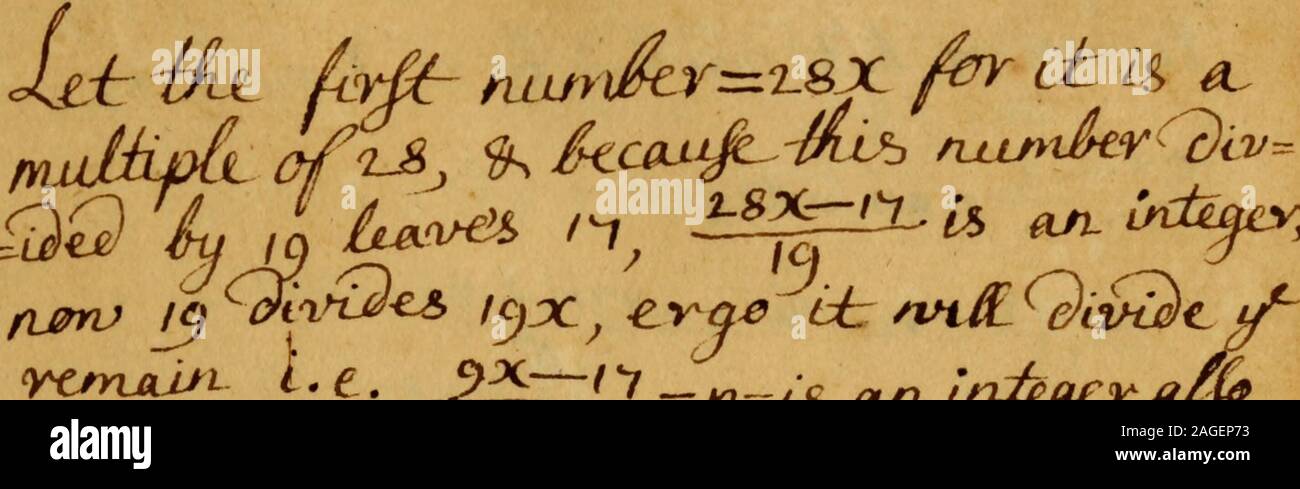 Let the firſt number=28x for it is a
multiple of 28, & becauſe this number div=
=ided by 19 leaves 17, 28x—17 is an integer,
19
now 19 divides 19x, ergo it will divide yᵉ
remain i.e. 9x—17 =n=is an integer alſo
a alamy stock photo
alamy
Image ID: 2AGEP73
www.alamy.com